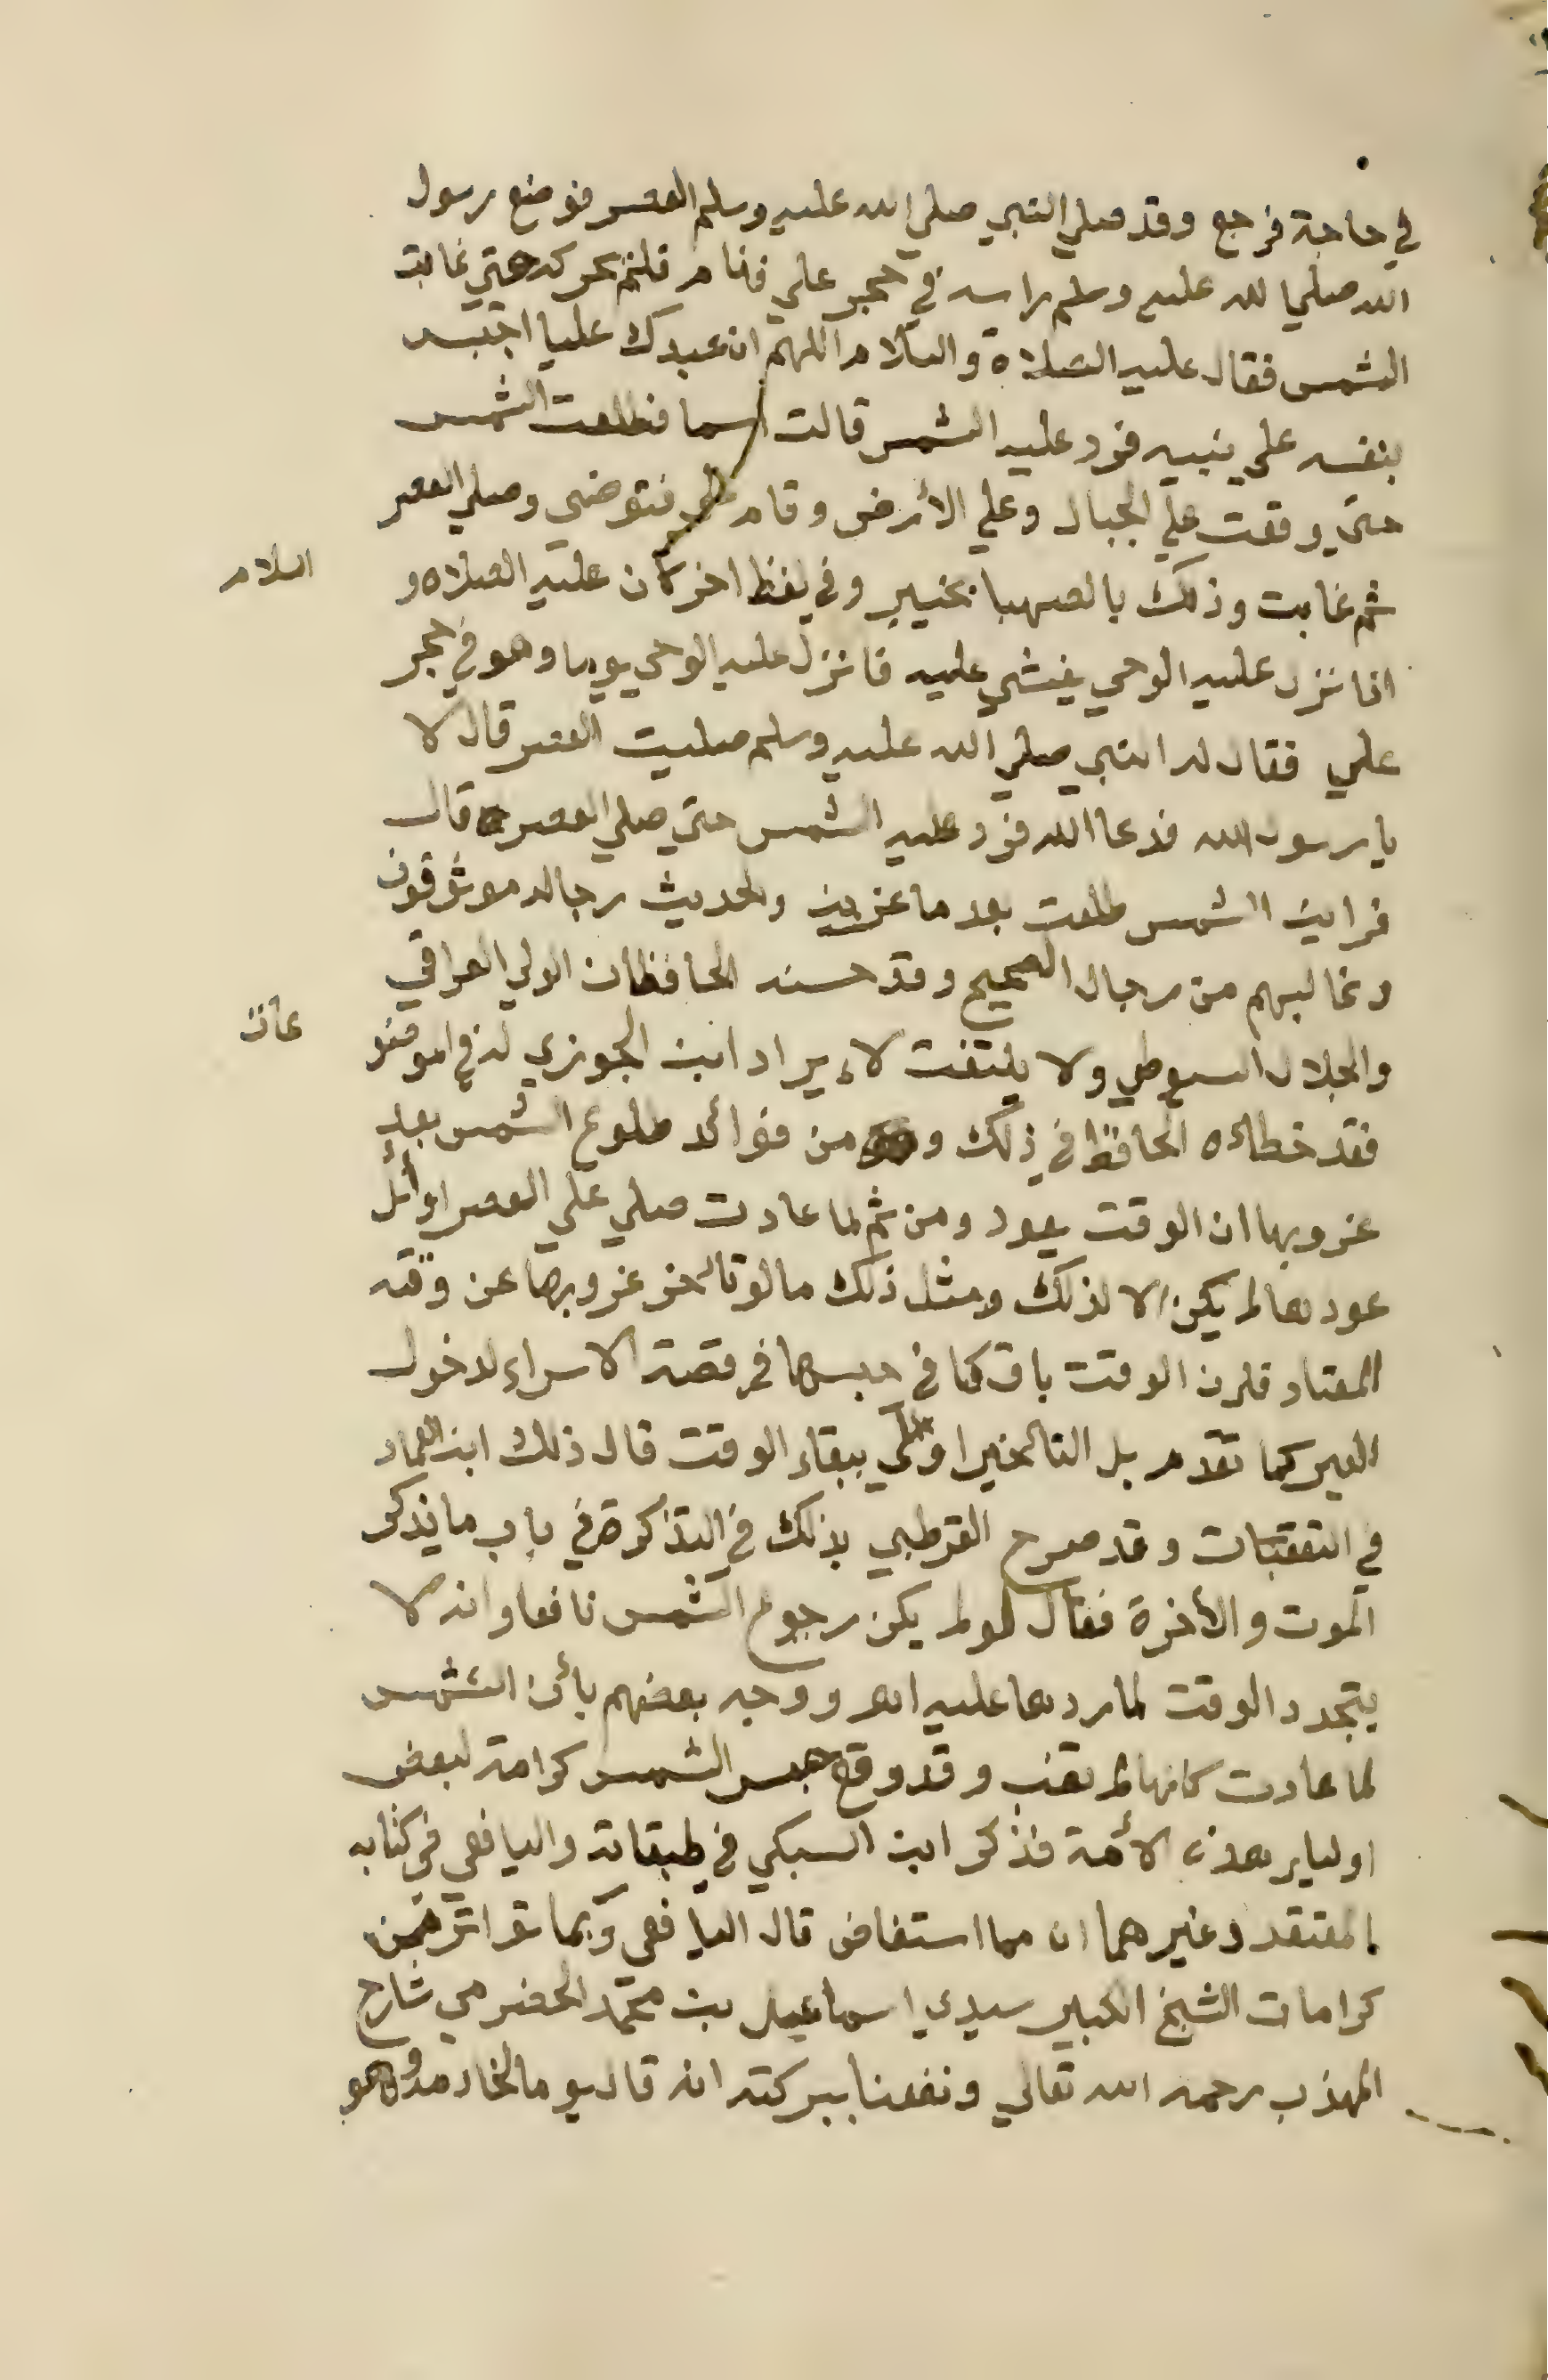 في حاجة فرجع وقد صلي النبي صلي الله عليه وسلم العصر فوضع رسول
الله صلي الله عليه وسلم راسه في حجر علي فنام فلم يحركه حتي غابت
الشمس فقال عليه الصلاة والسلام اللهم ان عبدك عليا احتبس
بنفسه علي نبيه فرد عليه الشمس قالت اسما فطلعت الشمس
حتي وقفت علي الجبال وعلي الأرض وقام علي فتوضي وصلي العصر
ثم غابت وذلك بالصهبا بخيبر وفي لفظ اخر كان عليه الصلاه و
السلام
اذا نزل عليه الوحي يغشي عليه فانزل عليه الوحي يوما وهو في حجر
علي فقال له النبي صلي الله عليه وسلم صليت العصر قال لا
يا رسول الله فدعا الله فرد عليه الشمس حتي صلي العصر قال
فرايت الشمس طلعت بعد ما غربت والحديث رجاله موثوقون
وغالبهم من رجال الصحيح وقد حسنه الحافظان الولي العراقي
والجلال السيوطي ولا يلتفت لاءيراد ابن الجوزي له في الموضو
عات
فقد خطاءه الحافظ في ذلك و من فوائد طلوع الشمس بعد
غروبها ان الوقت يعود ومن ثم لما عادت صلي علي العصر اوائل
عودها لم يكن الا لذلك ومثل ذلك ما لو تاءخر غروبها عن وقته
المعتاد فلان الوقت باق كما في حبسها في قصة الاسراء لدخول
العير كما تقدم بل التاءخير اولي ببقاء الوقت قال ذلك ابن العماد
في التعقبات وقد صرح القرطبي بذلك في التذكرة في باب ما يذكر
الموت والأخرة فقال لو لم يكن رجوع الشمس نافعا وانه لا
يتجدد الوقت لما ردها عليه اهـ ووجه بعضهم بأن الشمس
لما عادت كانها لم تغب وقد وقع حبس الشمس كرامة لبعض
اولياء هذه الأمة فذكر ابن السبكي في طبقاته واليافعي في كتابه
المعتقد وغيرهما ان مما استفاض قال اليافعي وكما تواتر فمن
كرامات الشيخ الكبير سيدي اسماعيل بن محمد الحضرمي شارح
المهذب رحمه الله تعالي ونفعنا ببركته انه قال يوما لخادمه وهو